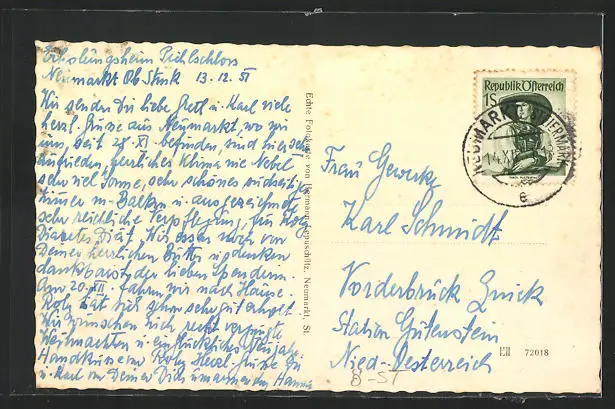 Erholungsheim Pichlschloss
Neumarkt Ob. Stmk 13.12.51
Wir senden Dir liebe Gretl u. Karl viele
herzl. Grüsse aus Neumarkt, wo wir
uns, seit 28 XI befinden, sind hier sehr
zufrieden, herrliches Klima nie Nebel
sehr viel Sonne, sehr schönes südseitig.
Zimer m. Balkon u. ausgezeichnet
sehr reichliche Verpflegung, für
Diabetes Diät. Wir essen noch von
Deiner herrlichen Butter u. gedenken
dankbarst der lieben Spenderin.
Am 20. XII. fahren wir nach Hause.
hat sich sehr sehr gut erholt.
Wir wünschen Euch recht vergnügte
Weihnachten u. ein glückliches Neujahr.
Handküsse von Herzl. Grüsse Dir
u. Karl von Deiner Dich umarmenden Hanna
Echte Fotokarte von Hermann, Neumarkt, St.
Republik Österreich
1S
NEUMARKT STEIERMARK
14.XII
e
Frau Gewerke
Karl Schmidt
Vorderbrück Zwick
Station Gutenstein
Nied-Oesterreich
72018